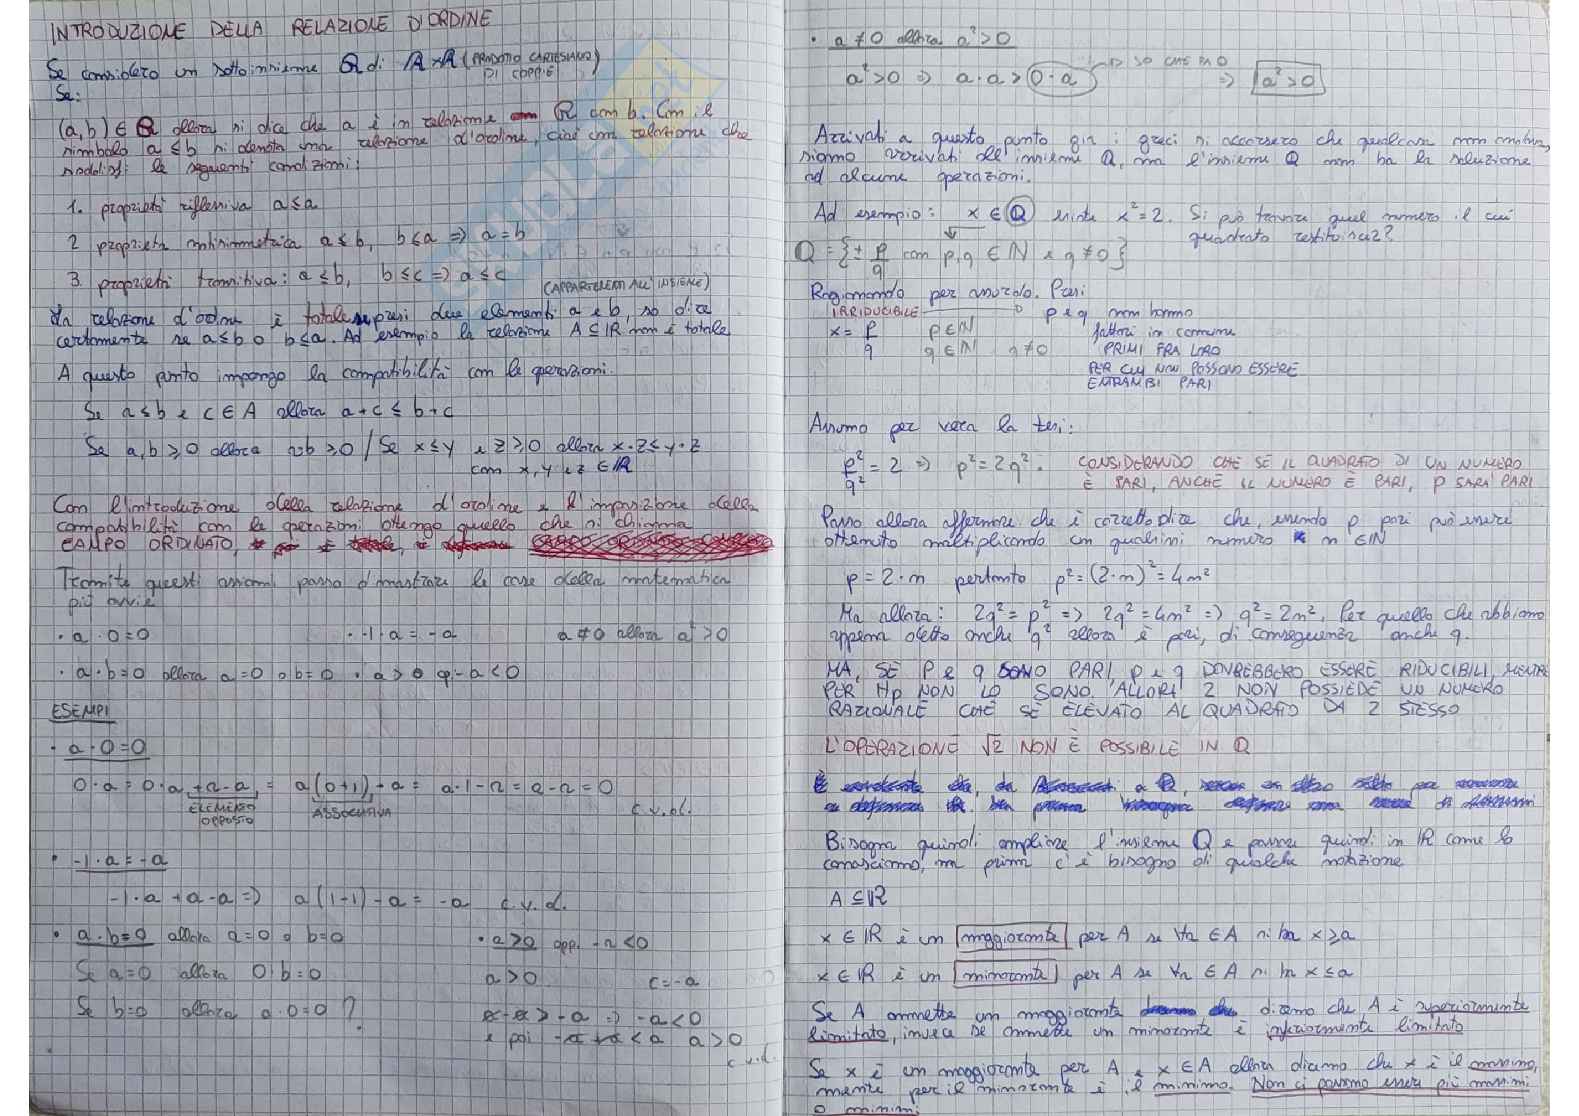 INTRODUZIONE DELLA RELAZIONE D'ORDINE
Se considero un sottoinsieme R di A×A (PRODOTTO CARTESIANO)
DI COPPIE
Se:
(a,b) ∈ R allora si dice che a è in relazione R con b. Con il
simbolo a ≤ b si denota una relazione d'ordine, cioè con relazione che
soddisfi le seguenti condizioni:
1. proprietà riflessiva a ≤ a
2 proprietà antisimmetrica a ≤ b, b ≤ a => a = b
3. proprietà transitiva: a ≤ b, b ≤ c => a ≤ c
(APPARTENENTI ALL'INSIEME)
La relazione d'ordine è totale se presi due elementi a e b, so dire
certamente se a ≤ b o b ≤ a. Ad esempio la relazione A ⊆ ℝ non è totale
A questo punto impongo la compatibilità con le operazioni.
Se a ≤ b e c ∈ A allora a + c ≤ b + c
Se a, b ≥ 0 allora ab ≥ 0 / Se x ≤ y e z ≥ 0 allora x·z ≤ y·z
con x, y e z ∈ ℝ
Con l'introduzione della relazione d'ordine e l'imposizione della
compatibilità con le operazioni ottengo quello che si chiama
CAMPO ORDINATO,
Tramite questi assiomi posso dimostrare le cose della matematica
più ovvie
· a · 0 = 0 · -1 · a = -a a ≠ 0 allora a² > 0
· a · b = 0 allora a = 0 o b = 0 · a > 0 op -a < 0
ESEMPI
· a · 0 = 0
0 · a = 0 · a + a - a = a(0+1) - a = a · 1 - a = a - a = 0
ELEMENTO OPPOSTO ASSOCIATIVA c.v.d.
· -1 · a = -a
-1 · a + a - a => a(1-1) - a = -a c.v.d.
· a · b = 0 allora a = 0 o b = 0 · a > 0 opp. -a < 0
Se a = 0 allora 0 · b = 0 a > 0 c = -a
Se b = 0 allora a · 0 = 0 ? a - a > -a => -a < 0
e poi -a + a < a a > 0
c.v.d.
· a ≠ 0 allora a² > 0
a² > 0 => a · a > 0 · a SO CHE FA 0 => a² > 0
Arrivati a questo punto già i greci si accorsero che qualcosa non andava,
siamo arrivati all'insieme Q, ma l'insieme Q non ha la soluzione
ad alcune operazioni.
Ad esempio: x ∈ Q esiste x² = 2. Si può trovare quel numero il cui
quadrato restituisca 2?
Q = {± p/q con p, q ∈ ℕ e q ≠ 0}
Ragionando per assurdo. Poni
IRRIDUCIBILE p e q non hanno
x = p/q p ∈ ℕ fattori in comune
q ∈ ℕ q ≠ 0 PRIMI FRA LORO
PER CUI NON POSSONO ESSERE
ENTRAMBI PARI
Assumo per vera la tesi:
p²/q² = 2 => p² = 2q². CONSIDERANDO CHE SE IL QUADRATO DI UN NUMERO
È PARI, ANCHE IL NUMERO È PARI, p SARA' PARI
Posso allora affermare che è corretto dire che, essendo p pari può essere
ottenuto moltiplicando un qualsiasi numero m ∈ ℕ
p = 2 · m pertanto p² = (2·m)² = 4m²
Ma allora: 2q² = p² => 2q² = 4m² => q² = 2m². Per quello che abbiamo
appena detto anche q² allora è pari, di conseguenza anche q.
MA, SE P e q SONO PARI, p e q DOVREBBERO ESSERE RIDUCIBILI, MENTRE
PER Hp NON LO SONO. ALLORA 2 NON POSSIEDE UN NUMERO
RAZIONALE CHE SE ELEVATO AL QUADRATO DA 2 STESSO
L'OPERAZIONE √2 NON È POSSIBILE IN Q
Bisogna quindi ampliare l'insieme Q e passare quindi in ℝ come lo
conosciamo, ma prima c'è bisogno di qualche notazione
A ⊆ ℝ
x ∈ ℝ è un maggiorante per A se ∀a ∈ A si ha x ≥ a
x ∈ ℝ è un minorante per A se ∀a ∈ A si ha x ≤ a
Se A ammette un maggiorante diremo che A è superiormente
limitato, invece se ammette un minorante è inferiormente limitato
Se x è un maggiorante per A e x ∈ A allora diciamo che x è il massimo,
mentre per il minorante è il minimo. Non ci possono essere più massimi
o minimi